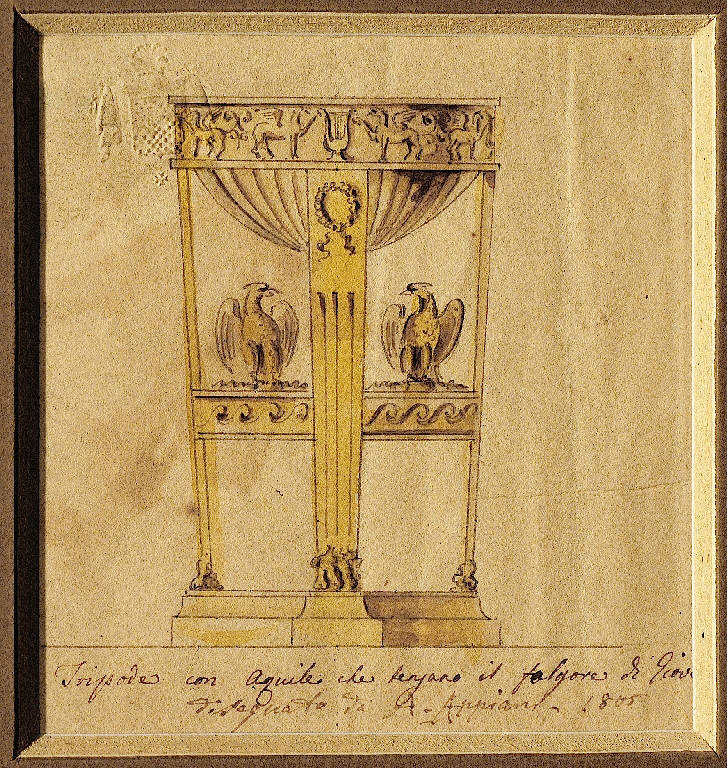 Tripode con Aquile che tengano il folgore di Giov
disegnato da A. Appiani - 1805